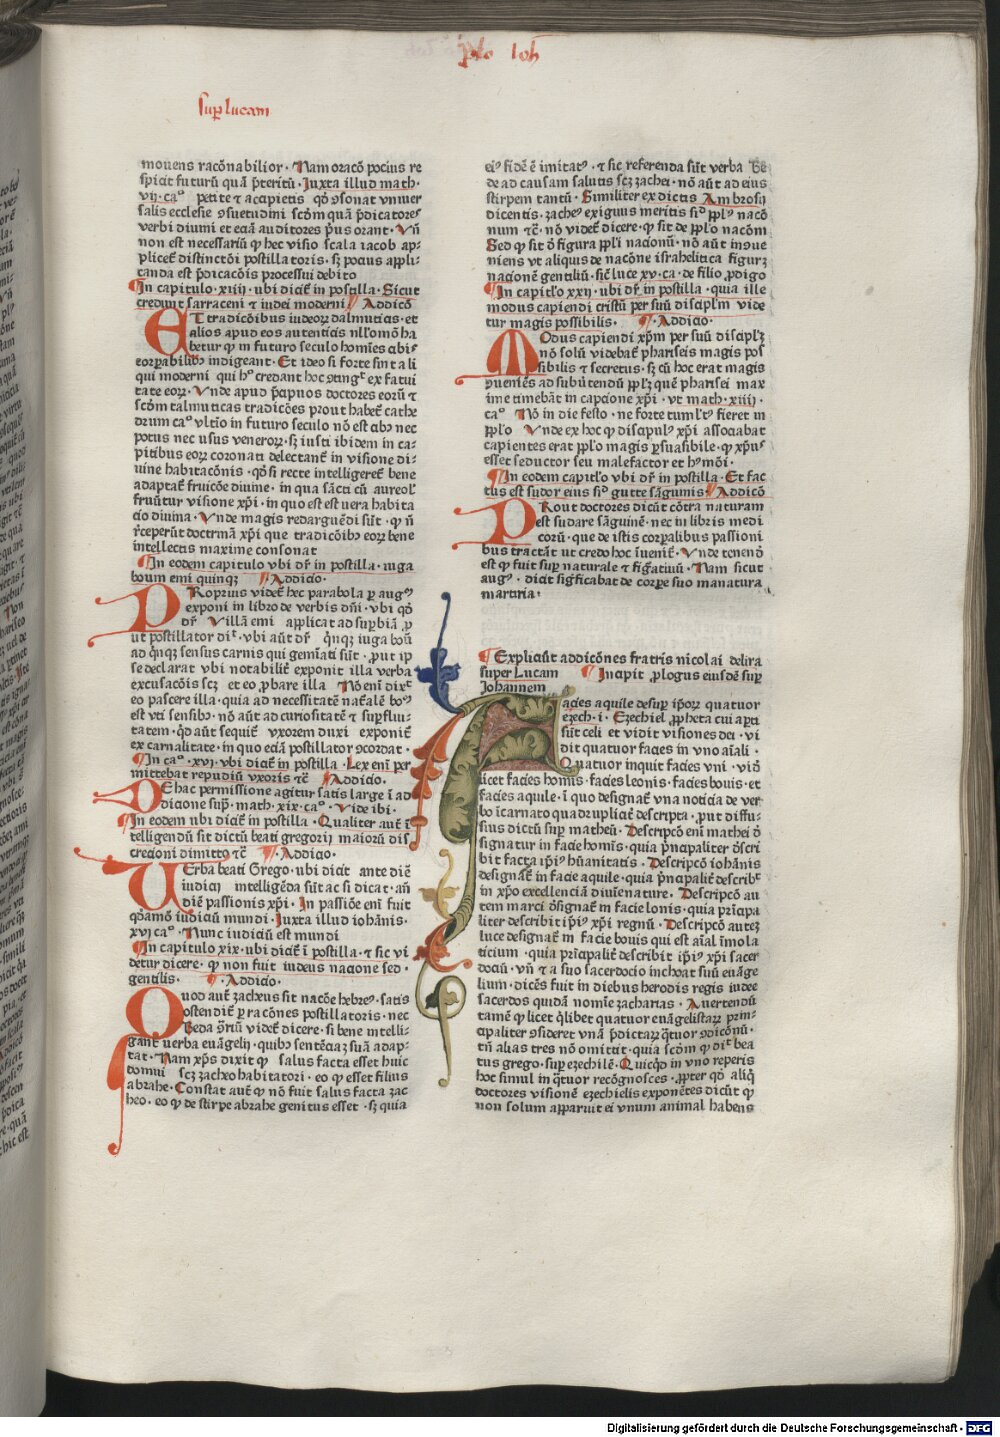 ꝓlo Ioh̄
Suꝑ lucam
mouens racōnabilior · Nam oracō pocius re
spicit futurū quā p̄teritū · Iuxta illud math ·
vij · caº petite ⁊ accipietis qď ꝯsonat vniuer
salis ecclesie ꝯsuetudini scd̄m quā p̄dicatores
verbi diuini et eciā auditores p̄us orant · Vn̄
non est necessariū ꝙ hec visio scala iacob ap-
plicet̄ distinctōi postillatoris · sꝫ pocius appli-
canda est p̄dicacōis processui debito
In capitulo · xiiij · vbi dicit̄ in postilla · Sicut
credunt sarraceni ⁊ iudei moderni Addicō
ET tradicōibus iudeoꝝ dalmuticis · et
alios apud eos autenticis nll'omō ha
betur ꝙ in futuro seculo homīes cibis
eoꝝꝑabilibꝰ indigeant · Et ideo si forte sint ali
qui moderni qui hº credant hoc ꝯtingᵗ ex fatui
tate eoꝝ · Vnde apud p̄cipuos doctores eorū ⁊
scd̄m talmuticas tradicōes prout habet̄ cathe
drum caº vltīo in futuro seculo nō est cibꝰ nec
potus nec usus venereoꝝ · sꝫ iusti ibidem in ca-
pitibus eoꝝ coronati delectant̄ in visione di-
uine habitacōnis · qď si recte intelligeret̄ bene
adaptat̄ fruicōe diuine · in qua sācti cū aureol'
fruūtur visione xp̄i · in quo est est vera habita
cio diuina · Vnde magis redarguēdi sūt · ꝙ n̄
rᵉceperūt doctrinā xp̄i que tradicōibꝰ eoꝝ bene
intellectis maxime consonat
In eodem capitulo vbi dr̄ in postilla · iuga
boum emi quinqꝫ Addicio ·
PRoprius videt̄ hec parabola ꝑ augꝰ
exponi in libro de verbis dn̄i · vbi qď
dr̄ · Villā emi applicat ad suꝑbiā ꝓ
ut postillator diᵗ · vbi aūt dr̄ qͥnqꝫ iuga boū
ad qͥnqꝫ sensus carnis qui gemīati sūt · ꝓut ip̄
se declarat vbi notabilit̄ exponit illa verba
excusacōis scꝫ et eo ꝓbare illa Nō enī dixᵗ
eo pascere illa · quia ad necessitatē nat̄alē boꝰ
est vti sensibꝰ · nō aūt ad curiositatē ⁊ suꝑflui-
tatem · qď aūt sequit̄ vxorem duxi exponit̄
ex carnalitate · in quo eciā postillator ꝯcordat ·
In caº · xvj · vbi dicit̄ in postilla · Lex enī per
mittebat repudiū vxoris ⁊c̄ Addicio ·
DE hac permissione agitur satis large ī ad
dicione supͣ · math · xix · caº · Vide ibi ·
In eodem ubi dicit̄ in postilla · Qualiter aut̄ ī
telligendū sit dictū beati gregorij maioris dis
crecioni dimitto ⁊c̄ Addicio ·
VErba beati Grego · vbi dicit ante diē
iudicij intelligēda sūt ac si dicat · an̄
diē passionis xp̄i · In passiōe enī fuit
qďāmō iudiciū mundi · Iuxta illud iohānis ·
xvj caº · Nunc iudiciū est mundi
In capitulo xix · vbi dicit̄ ī postilla · ⁊ sic vi
detur dicere · ꝙ non fuit iudeus nacione sed ·
gentilis · Addicio ·
QUod aut̄ zacheus sit nacōe hebreꝰ · satis
ostendit̄ ꝑ racōnes postillatoris · nec
Beda ꝯriū videt̄ dicere · si bene intelli-
gant̄ verba euāgelij · quibꝰ sentēciaꝫ suā adap-
tat · Nam xp̄s dixit ꝙ salus facta esset huic
domui scꝫ zacheo habitatori · eo ꝙ esset filius
abrahe · Constat aut̄ ꝙ nō fuit salus facta zac
heo · eo ꝙ de stirpe abrahe genitus esset · sꝫ quia
eiꝰ fidē ē imitatꝰ · ⁊ sic referenda sūt verba Be
de ad causam salutis scꝫ zachei · nō aūt ad eius
stirpem tantū · Similiter ex dictis Ambrosij
dicentis · zacheꝰ exiguus meritis si᷒ ppl'ꝰ nacō
num ⁊c̄ · nō videt̄ dicere · ꝙ sit de ppl'o nacōm
Sed ꝙ sit ō figura ppl'i nacionū · nō aūt inꝯue
niens vt aliquis de nacōne israhelitica figuret
nacionē gentiliū · sic̄ luce xv · ca · de filio ꝓdigo
In capitl'o xxij · vbi dr̄ in postilla · quia ille
modus capiendi cristū per suū discipl'm vide
tur magis possibilis · Addicio ·
MOdus capiendi xp̄m per suū discipl'ꝫ
nō solū videbat̄ phariseis magis pos
sibilis ⁊ secretus · sꝫ cū hoc erat magis
ꝯueniēs ad subūtendū ppl'ꝫ quē pharisei max
ime timebāt in capcione xp̄i · vt math · xiiij ·
caº Nō in die festo · ne forte tumlt'ꝰ fieret in
ppl'o Vnde ex hoc ꝙ discipul'ꝰ xp̄i associabat
capientes erat ppl'o magis ꝑsuasibile · ꝙ xp̄us
esset seductor seu malefactor et hꝰmōi ·
In eodem capitl'o vbi dr̄ in postilla · Et fac
tus est sudor eius sic̄ gutte sāguinis Addicō
PRout doctores dicūt cōtra naturam
est sudare sāguinē · nec in libris medi
corū · que de istis corꝑalibus passioni
bus tractāt ut credo hoc īuenit̄ · Vnde tenenď
est ꝙ fuit supͣ naturale ⁊ figᵃtiuū · Nam sicut
augꝰ · dicit sigficabat de corꝑe suo manatura
martiria ·
Expliciūt addicōnes fratris nicolai delira
super Lucam Incipit ꝓlogus eiusdē suꝑ
Johannem
Facies aquile desuꝑ ip̄oꝝ quatuor
ezech · i · Ezechiel ꝓpheta cui aꝑti
sūt celi et vidit visiones dei · vi
dit quatuor facies in vno aīali ·
Quatuor inquit facies vni · vidꝫ
licet facies homīs · facies leonis · facies bouis · et
facies aquile · ī quo designat̄ vna noticia de ver
bo īcarnato quadrupliciē descripta · ꝓut diffu-
sius dictū suꝑ matheū · Descripcō enī mathei ď
signatur in facie homīs · quia p̄ncipaliter ďscri
bit facta ip̄iꝰ hūanitatis · Descripcō iohānis
designat̄ in facie aquile · quia p̄ncipalit̄ describᵗ
in xp̄o excellenciā diuīe nature · Descripcō au
tem marci ďsignat̄ in facie lonis · quia prīcipa
liter describit ip̄iꝰ xp̄i regnū · Descripcō auteꝫ
luce designat̄ in facie bouis qui est aīal īmola
ticium · quia prīcipalit̄ describit ip̄iꝰ xp̄i sacer
dociū · vn̄ ⁊ a suo sacerdocio inchoat suū euāge
lium · dicēs fuit in diebus herodis regis iudee
sacerdos quidā nomīe zacharias · Auertendū
tamē ꝙ licet qͥlibet quatuor euāgelistaꝝ prin-
cipaliter ꝯsideret vnā p̄dictaꝝ qͣtuor ꝯdicōnū ·
tn̄ alias tres nō omittit · quia scd̄m ꝙ diᵗ bea
tus grego · suꝑ ezechilē · Quicqͥď in vno reperis
hoc simul in qͣtuor recōgnosces · ꝓpter qď aliqͥ
doctores visionē ezechielis exponētes dicūt ꝙ
non solum apparuit ei vnum animal habens
Digitalisierung gefördert durch die Deutsche Forschungsgemeinschaft · DFG